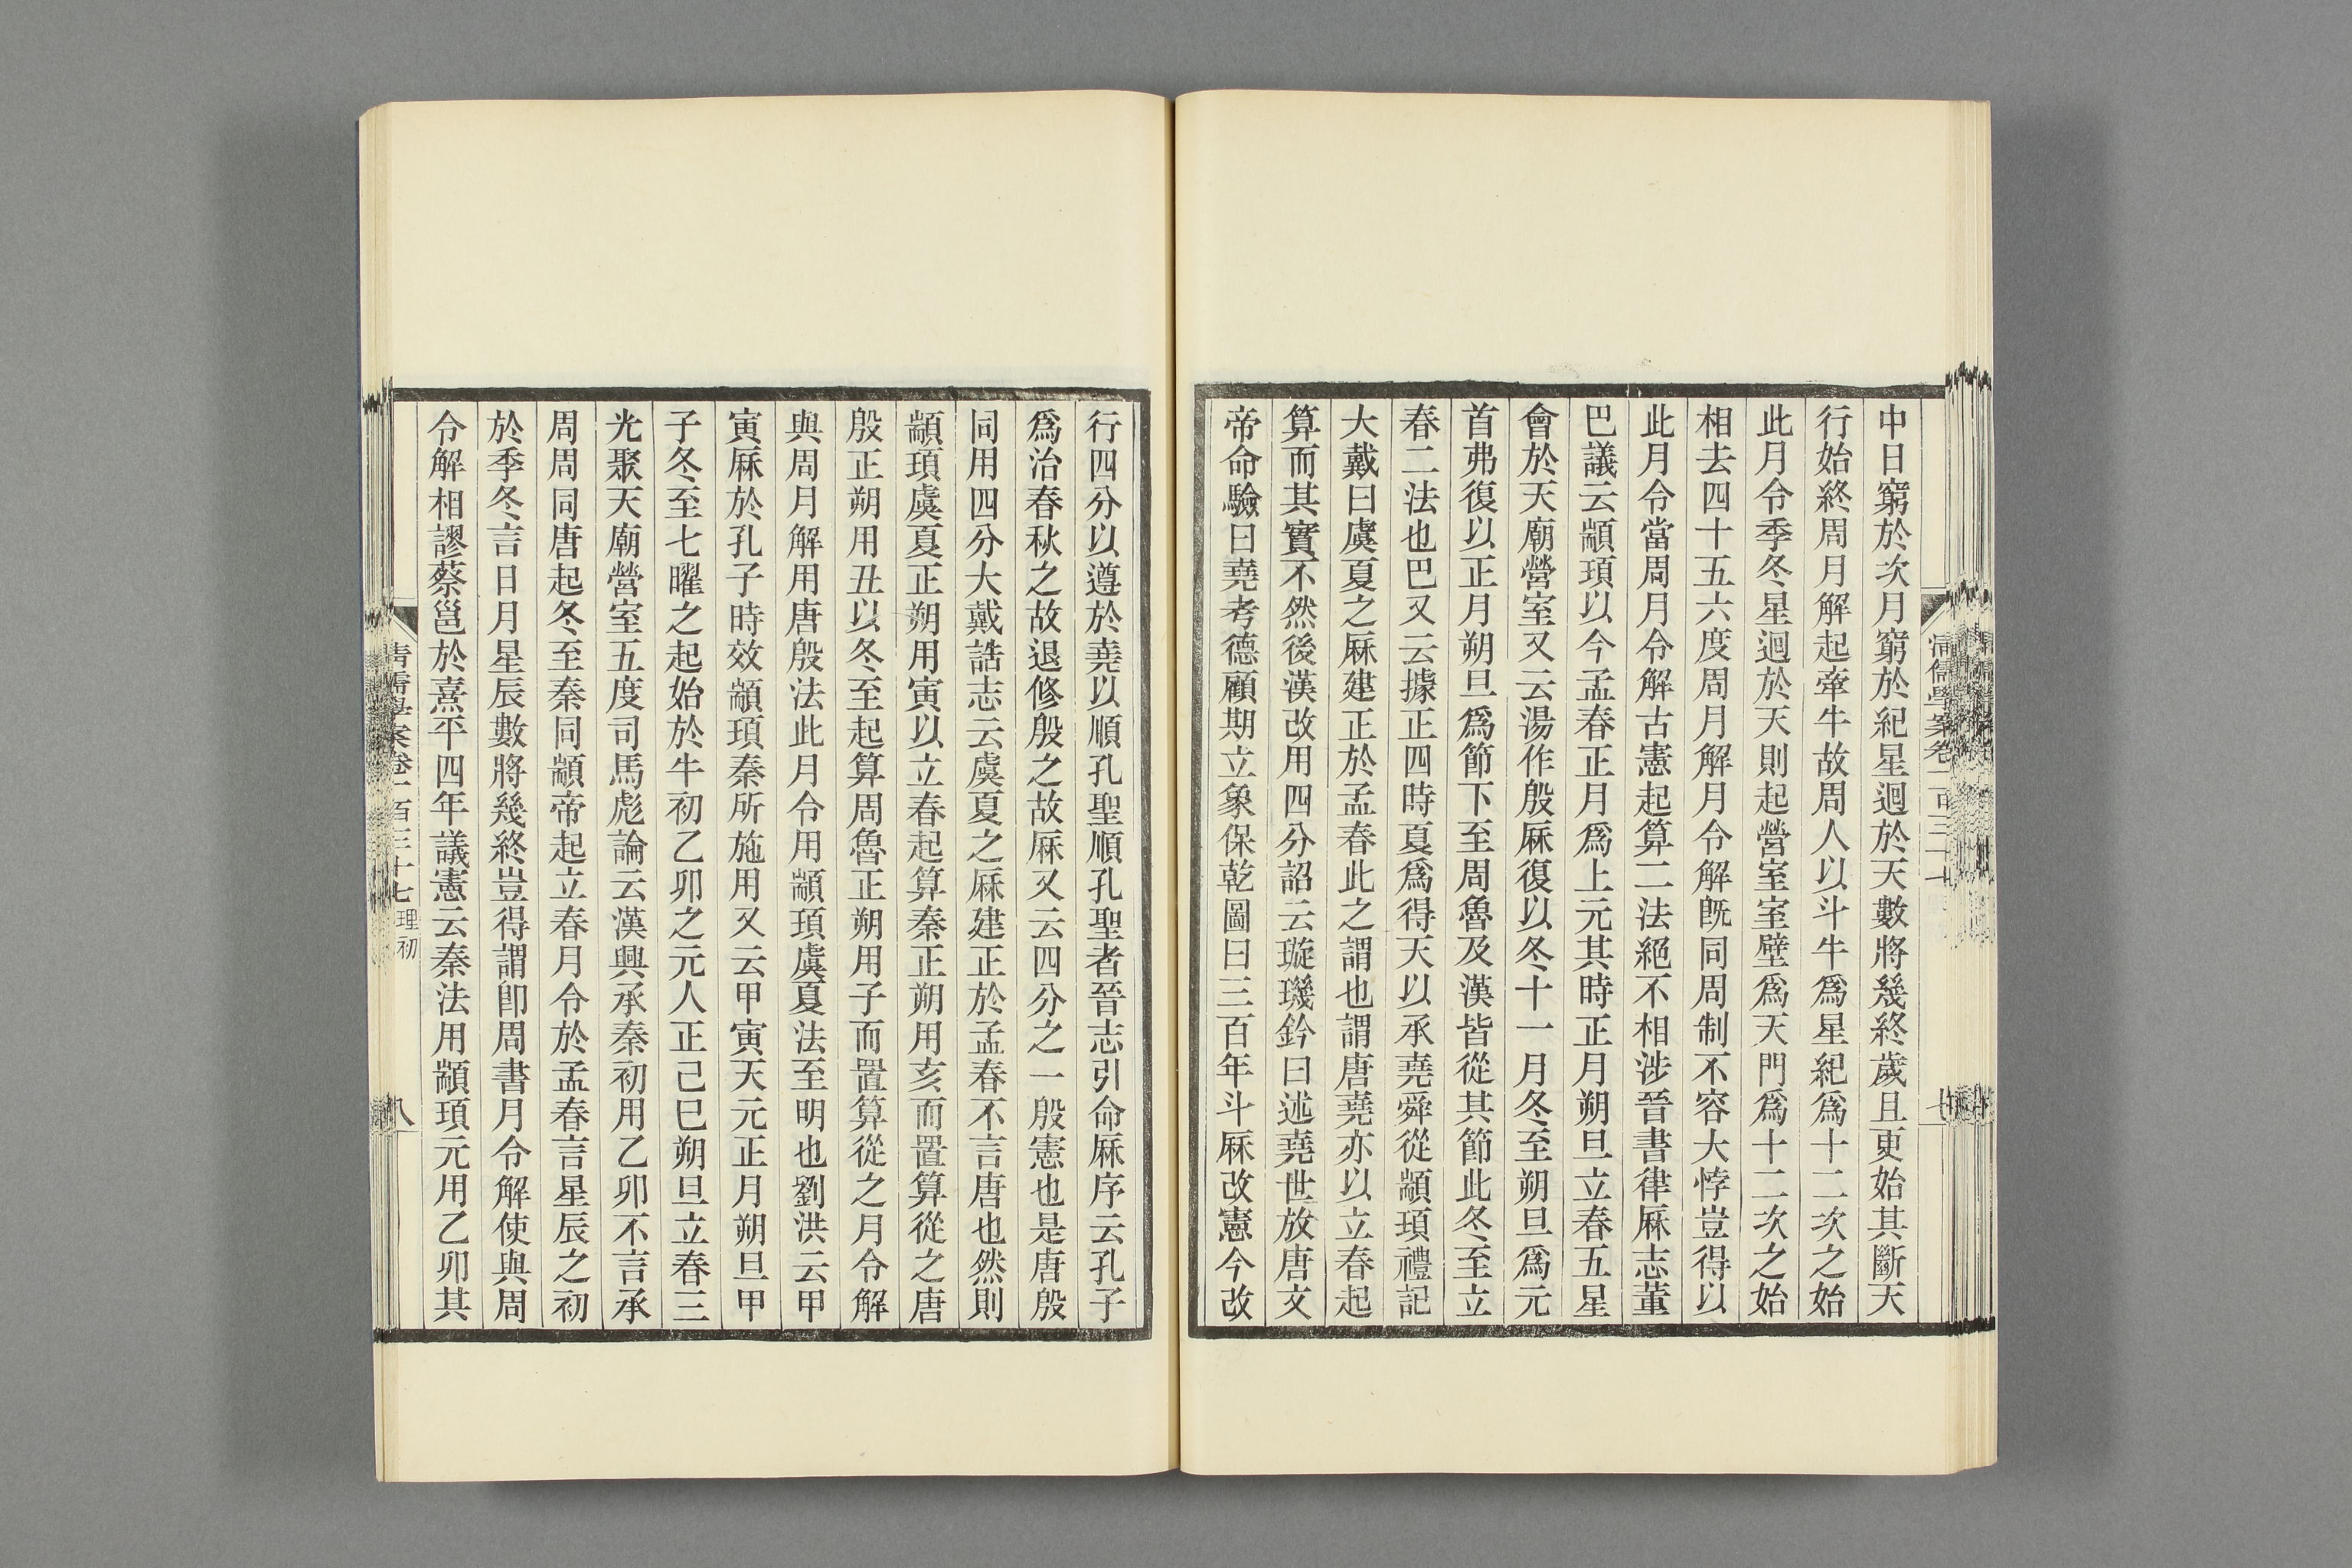 中日窮於次月窮於紀星迴於天數將幾終歲且更始其斷天
行始終周月解起牽牛故周人以斗牛爲星紀爲十二次之始
此月令季冬星迴於天則起營室室壁爲天門爲十二次之始
相去四十五六度周月解月令解旣同周制不容大悖豈得以
此月令當周月令解古憲起算二法絕不相涉晉書律厤志董
巴議云顓頊以今孟春正月爲上元其時正月朔旦立春五星
會於天廟營室又云湯作殷厤復以冬十一月冬至朔旦爲元
首弗復以正月朔旦爲節下至周魯及漢皆從其節此冬至立
春二法也巴又云據正四時夏爲得天以承堯舜從顓頊禮記
大戴曰虞夏之厤建正於孟春此之謂也謂唐堯亦以立春起
算而其實不然後漢改用四分詔云璇璣鈐曰述堯世放唐文
帝命驗曰堯考德顧期立象保乾圖曰三百年斗厤改憲今改
行四分以遵於堯以順孔聖順孔聖者晉志引命厤序云孔子
爲治春秋之故退修殷之故厤又云四分之一殷憲也是唐殷
同用四分大戴誥志云虞夏之厤建正於孟春不言唐也然則
顓頊虞夏正朔用寅以立春起算秦正朔用亥而置算從之唐
殷正朔用丑以冬至起算周魯正朔用子而置算從之月令解
與周月解用唐殷法此月令用顓頊虞夏法至明也劉洪云甲
寅厤於孔子時效顓頊秦所施用又云甲寅天元正月朔旦甲
子冬至七曜之起始於牛初乙卯之元人正己巳朔旦立春三
光聚天廟營室五度司馬彪論云漢興承秦初用乙卯不言承
周周同唐起冬至秦同顓帝起立春月令於孟春言星辰之初
於季冬言日月星辰數將幾終豈得謂卽周書月令解使與周
令解相謬蔡邕於熹平四年議憲云秦法用顓頊元用乙卯其
清儒學案卷一百三十七 理初
八